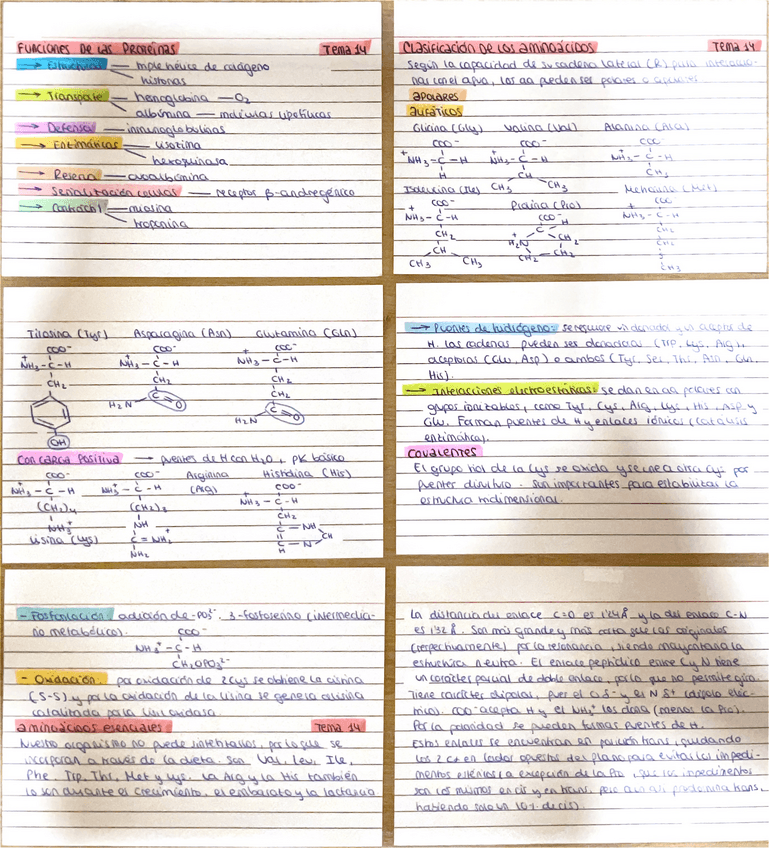 FUNCIONES DE LAS PROTEÍNAS Tema 14
→ Estructural — triple hélice de colágeno
histonas
→ Transporte — hemoglobina — O₂
albúmina — moléculas lipofílicas
→ Defensa — inmunoglobulinas
→ Enzimáticas — lisozima
hexoquinasa
→ Reserva — ovoalbúmina
→ Señalización celular — receptor β-andregénico
→ Contráctil — miosina
troponina
CLASIFICACIÓN DE LOS AMINOÁCIDOS Tema 14
Según la capacidad de su cadena lateral (R) para interaccio-
nar con el agua, los aa pueden ser polares o apolares
APOLARES
ALIFÁTICOS
Glicina (Gly) Valina (Val) Alanina (Ala)
COO⁻ COO⁻ COO⁻
⁺NH₃-C-H ⁺NH₃-C-H ⁺NH₃-C-H
H CH CH₃
CH₃ CH₃
Isoleucina (Ile) Prolina (Pro) Metionina (Met)
COO⁻ COO⁻ COO⁻
⁺NH₃-C-H C H ⁺NH₃-C-H
CH₂ H₂N CH₂ CH₂
CH CH₂ CH₂ CH₂
CH₃ CH₃ S
CH₃
Tirosina (Tyr) Asparagina (Asn) Glutamina (Gln)
COO⁻ COO⁻ COO⁻
⁺NH₃-C-H ⁺NH₃-C-H ⁺NH₃-C-H
CH₂ CH₂ CH₂
H₂N C=O CH₂
OH H₂N C=O
CON CARGA POSITIVA → puentes de H con H₂O, pK básico
COO⁻ COO⁻ Arginina Histidina (His)
⁺NH₃-C-H ⁺NH₃-C-H (Arg) COO⁻
(CH₂)₄ (CH₂)₃ ⁺NH₃-C-H
NH₃⁺ NH CH₂
Lisina (Lys) C=NH₂⁺ C-NH
NH₂ C-N CH
H
→ Puentes de hidrógeno: se requiere un donador y un aceptor de
H. Las cadenas pueden ser donadoras (Trp, Lys, Arg),
aceptoras (Glu, Asp) o ambos (Tyr, Ser, Thr, Asn, Gln,
His).
→ Interacciones electroestáticas: se dan en aa polares con
grupos ionizables, como Tyr, Cys, Arg, Lys, His, Asp y
Glu. Forman puentes de H y enlaces iónicos (catálisis
enzimática).
COVALENTES
El grupo tiol de la Cys se oxida y se une a otra Cys por
puentes disulfuro. Son importantes para estabilizar la
estructura tridimensional.
- Fosforilación: adición de -PO₃²⁻. 3-fosfoserina (intermedia-
rio metabólico). COO⁻
NH₃⁺-C-H
CH₂OPO₃²⁻
- Oxidación: por oxidación de 2 Cys se obtiene la cistina
(S-S) y por la oxidación de la lisina se genera alisina
catalizada por la lisil oxidasa.
AMINOÁCIDOS ESENCIALES Tema 14
Nuestro organismo no puede sintetizarlos, por lo que se
incorporan a través de la dieta. Son Val, Leu, Ile,
Phe, Trp, Thr, Met y Lys. La Arg y la His también
lo son durante el crecimiento, el embarazo y la lactancia
La distancia del enlace C=O es 1'24 Å y la del enlace C-N
es 1'32 Å. Son más grande y más corta que las originales
(respectivamente) por la resonancia, siendo mayoritaria la
estructura neutra. El enlace peptídico entre C y N tiene
un carácter parcial de doble enlace, por lo que no permite giro.
Tiene carácter dipolar, pues el O δ⁻ y el N δ⁺ (dipolo eléc-
trico). COO⁻ acepta H y el NH₃⁺ los dona (menos la Pro).
Por la polaridad se pueden formar puentes de H.
Estos enlaces se encuentran en posición trans, quedando
los 2 Cα en lados opuestos del plano para evitar los impedi-
mentos estéricos (a excepción de la Pro, que los impedimentos
son los mismos en cis y en trans, pero aun así predomina trans,
habiendo solo un 10% de cis).